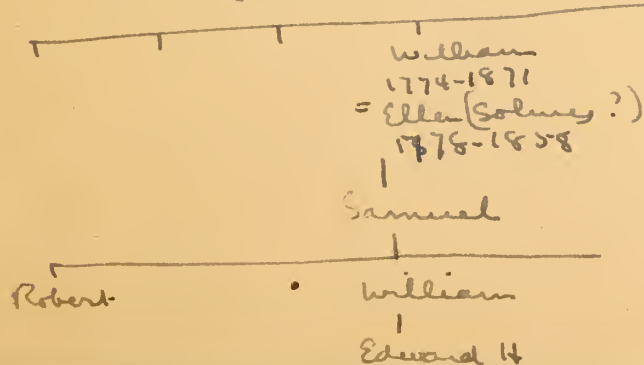 William
1774-1871
= Ellen (Solmes ?)
1778-1858
Samuel
Robert William
Edward H